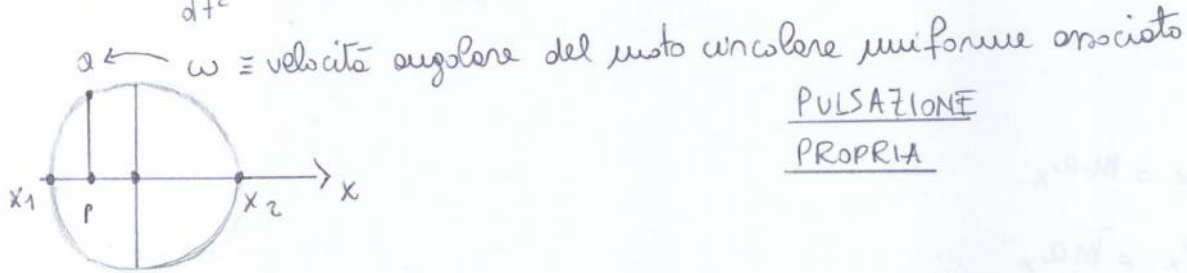 dt²
a ← ω ≡ velocità angolare del moto circolare uniforme associato
PULSAZIONE
PROPRIA
x1 P x2 x